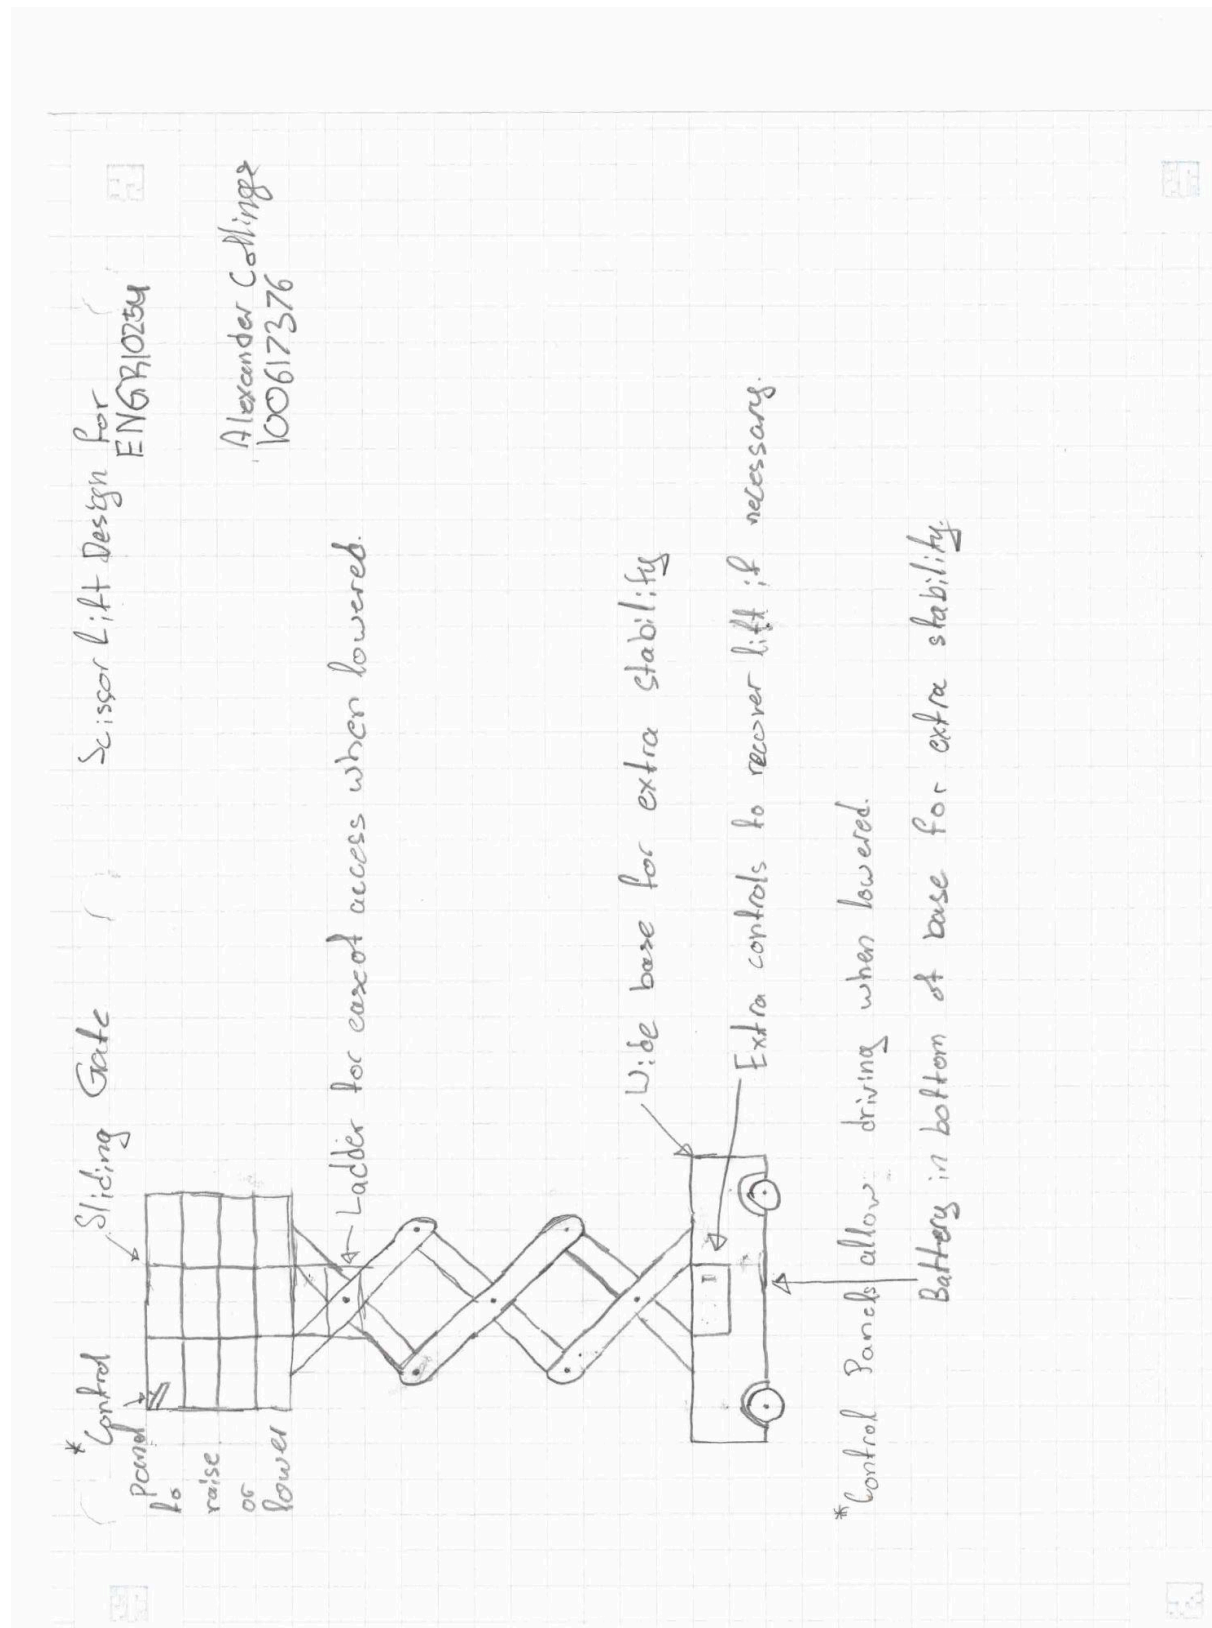 Scissor Lift Design for
ENGR1025U
Alexander Collinge
100617376
* Control
Panel
to
raise
or
lower
Sliding Gate
Ladder for ease of access when lowered.
Wide base for extra stability
Extra controls to recover lift if necessary.
* Control Panels allow driving when lowered.
Battery in bottom of base for extra stability.